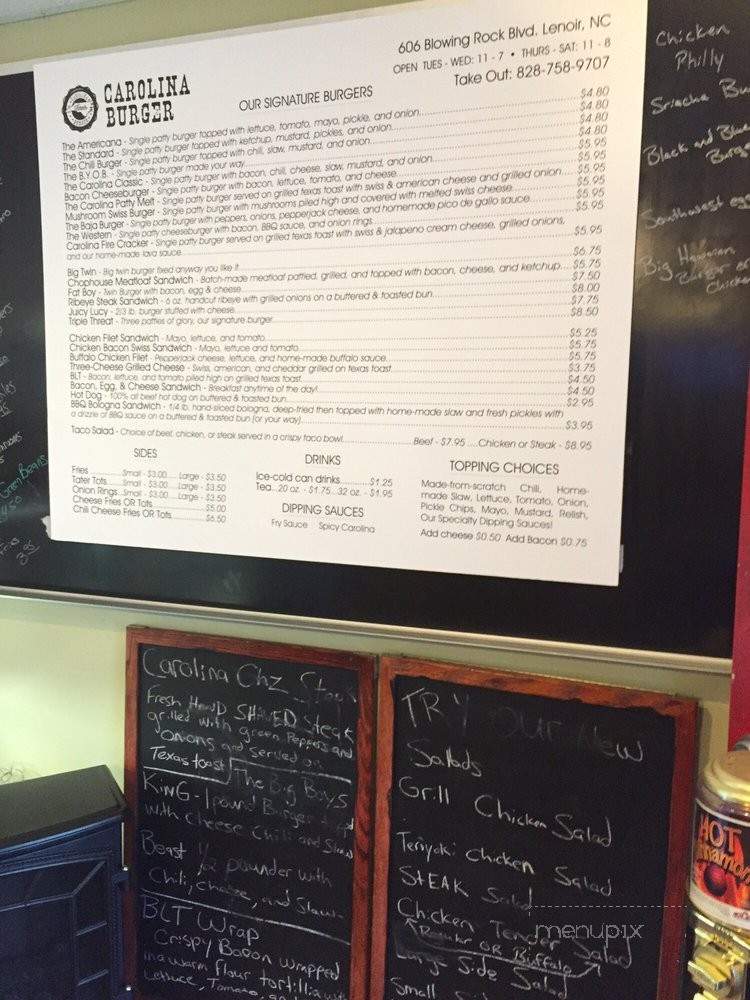 CAROLINA
BURGER
606 Blowing Rock Blvd. Lenoir, NC
OPEN TUES - WED: 11 - 7 • THURS - SAT: 11 - 8
Take Out: 828-758-9707
OUR SIGNATURE BURGERS
The Americana - Single patty burger topped with lettuce, tomato, mayo, pickle, and onion $4.80
The Standard - Single patty burger topped with ketchup, mustard, pickles, and onion $4.80
The Chili Burger - Single patty burger topped with chili, slaw, mustard, and onion $4.80
The B.Y.O.B. - Single patty burger made your way $4.80
The Carolina Classic - Single patty burger with bacon, chili, cheese, slaw, mustard, and onion $5.95
Bacon Cheeseburger - Single patty burger with bacon, lettuce, tomato, and cheese $5.95
The Carolina Patty Melt - Single patty burger served on grilled texas toast with swiss & american cheese and grilled onion $5.95
Mushroom Swiss Burger - Single patty burger with mushrooms piled high and covered with melted swiss cheese $5.95
The Baja Burger - Single patty burger with peppers, onions, pepperjack cheese, and homemade pico de gallo sauce $5.95
The Western - Single patty cheeseburger with bacon, BBQ sauce, and onion rings $5.95
Carolina Fire Cracker - Single patty burger served on grilled texas toast with swiss & jalapeno cream cheese, grilled onions,
and our home-made lava sauce $5.95
Big Twin - Big twin burger fixed anyway you like it $6.75
Chophouse Meatloaf Sandwich - Batch-made meatloaf pattied, grilled, and topped with bacon, cheese, and ketchup $5.75
Fat Boy - Twin Burger with bacon, egg & cheese $7.50
Ribeye Steak Sandwich - 6 oz. handcut ribeye with grilled onions on a buttered & toasted bun $8.00
Juicy Lucy - 2/3 lb. burger stuffed with cheese $7.75
Triple Threat - Three patties of glory, our signature burger $8.50
Chicken Filet Sandwich - Mayo, lettuce, and tomato $5.25
Chicken Bacon Swiss Sandwich - Mayo, lettuce and tomato $5.75
Buffalo Chicken Filet - Pepperjack cheese, lettuce, and home-made buffalo sauce $5.75
Three-Cheese Grilled Cheese - Swiss, american, and cheddar grilled on texas toast $3.75
BLT - Bacon, lettuce, and tomato piled high on grilled texas toast $4.50
Bacon, Egg, & Cheese Sandwich - Breakfast anytime of the day! $4.50
Hot Dog - 100% all beef hot dog on buttered & toasted bun $2.95
BBQ Bologna Sandwich - 1/4 lb. hand-sliced bologna, deep-fried then topped with home-made slaw and fresh pickles with
a drizzle of BBQ sauce on a buttered & toasted bun (or your way) $3.95
Taco Salad - Choice of beef, chicken, or steak served in a crispy taco bowl Beef - $7.95 Chicken or Steak - $8.95
SIDES
Fries Small - $3.00 Large - $3.50
Tater Tots Small - $3.00 Large - $3.50
Onion Rings Small - $3.00 Large - $3.50
Cheese Fries OR Tots $5.00
Chili Cheese Fries OR Tots $5.50
DRINKS
Ice-cold can drinks $1.25
Tea...20 oz. - $1.75...32 oz. - $1.95
DIPPING SAUCES
Fry Sauce Spicy Carolina
TOPPING CHOICES
Made-from-scratch Chili, Home-
made Slaw, Lettuce, Tomato, Onion,
Pickle Chips, Mayo, Mustard, Relish,
Our Specialty Dipping Sauces!
Add cheese $0.50 Add Bacon $0.75
Chicken
Philly
Black and Blue
Burge
Southwest egg
Burger or
Chicken
Green Beans
3.95
Carolina Chz
Fresh HAND SHAVED Steak
grilled with green Peppers and
onions and served on
Texas toast
The Big Boys
KING - 1 pound Burger
with cheese chili and Slaw
Beast 1/2 pounder with
Chili, cheese, and Slaw
BLT Wrap
Crispy Bacon wrapped
in a warm flour tortilla with
Lettuce, Tomato,
TRY our New
Salads
Grill Chicken Salad
Teriyaki chicken Salad
STEAK Salad
Chicken Tender Salad
Regular OR Buffalo
Large Side Salad
Small
HOT
menupix